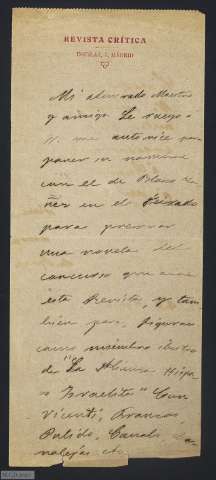 REVISTA CRÍTICA
MADRID
Mi admirado Maestro
y amigo Le ruego a
V. me autorice para
poner su nombre
con el de Blasco
ñez en el Jurado
para premiar
una novela del
concurso que
esta Revista, y tam
bien para figurar
como miembro
de "La Alianza Hispa
Israelita" con
Vicenti, Francos
Pulido, Canals
nalejas etc.